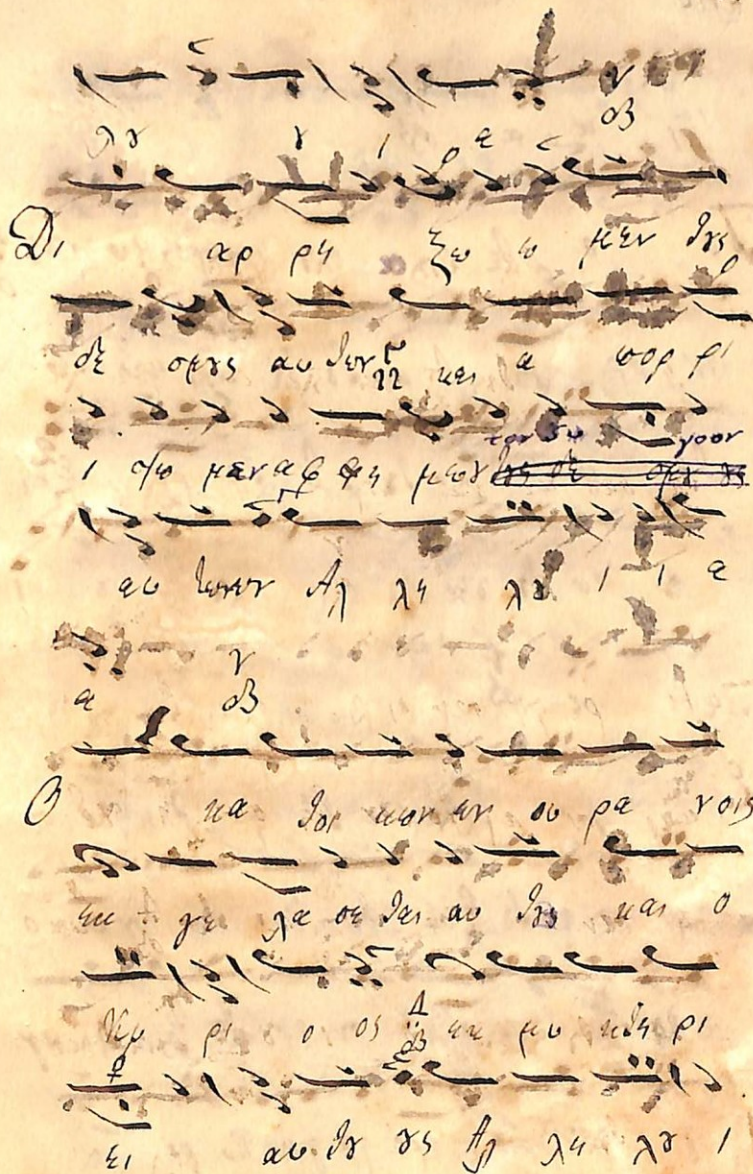 λȣ ȣ ι α
Δι αρ ρη ξω ω μεν τȣς
δε σμȣς αυ των και α πορ ρι
ι ψω μεν αφ η μων τον ζυ γοον
αυ τωων Αλ λη λȣ ι ι α
α
Ο κα τοι κων εν ου ρα νοις
εκ γε λα σε ται αυ τȣς και ο
Κυ ρι ο ος εκ μυ κτη ρι
ει αυ τȣ ȣς Αλ λη λȣ ι